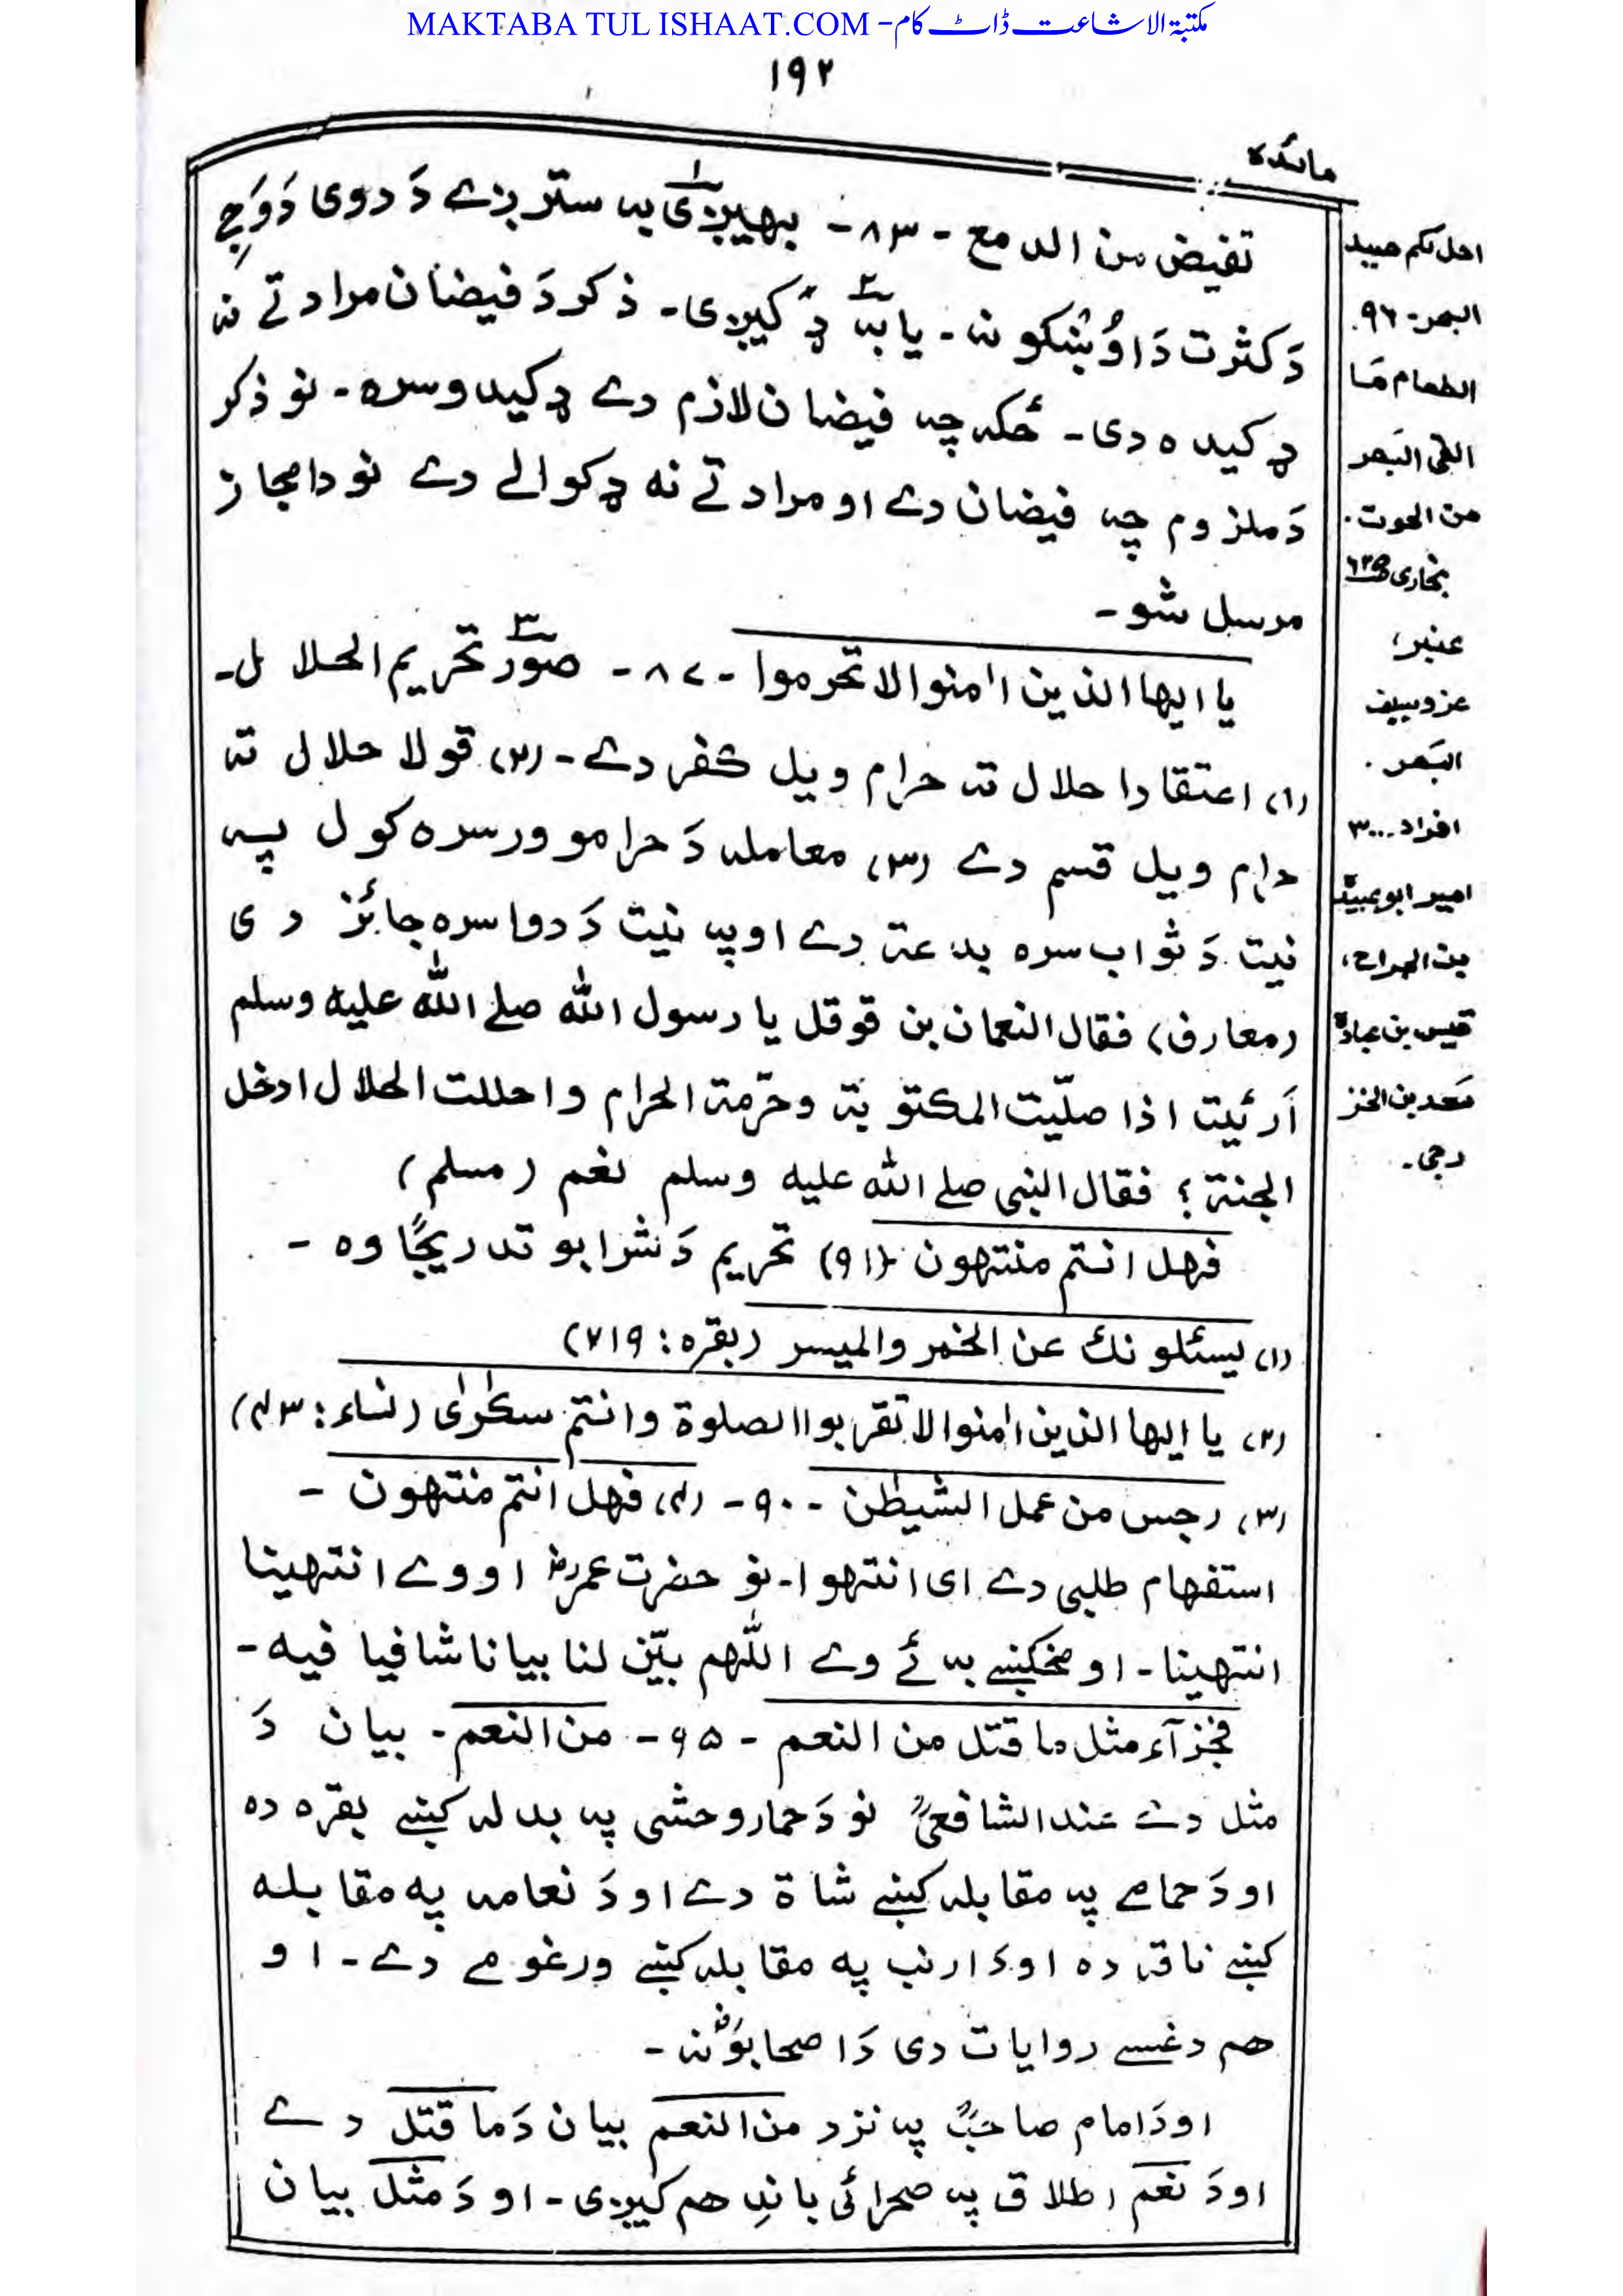 MAKTABA TUL ISHAAT.COM - مکتبۃ الاشاعت ڈاٹ کام
۱۹۲
مائدہ
تفیض من الدمع - ۸۳ - بهیږی به سترږے دَ دوی دَ وَجِ
دَ کثرت دَ اوُښکو نه - یا به ډکیږی - ذکر دَ فیضان مراد تے نه
ډکیده دی - ځکه چه فیضان لازم دے ډکیدو سره - نو ذکر
دَ ملزوم چه فیضان دے او مراد تے نه ډکوالے دے نو دا مجاز
مرسل شو -
یا ایها الذین اٰمنوا لا تحرموا - ۸۷ - صوَر تحریم الحلال -
(۱) اعتقادا حلال ته حرام ویل کفر دے - (۲) قولا حلال ته
حرام ویل قسم دے (۳) معامله دَ حرامو ورسره کول په
نیت دَ ثواب سره بدعة دے او په نیت دَ دوا سره جائز دی
(معارف) فقال النعمان بن قوقل یا رسول الله صلے الله علیه وسلم
اَرئیت اذا صلّیت المکتوبة وحرّمة الحرام واحللت الحلال ادخل
الجنة؟ فقال النبی صلے الله علیه وسلم نعم (مسلم)
فهل انتم منتهون (۹۱) تحریم دَ شرابو تدریجًا وه -
(۱) یسئلونك عن الخمر والمیسر (بقره: ۲۱۹)
(۲) یا ایها الذین اٰمنوا لا تقربوا الصلوة وانتم سکٰرٰی (نساء: ۴۳)
(۳) رجس من عمل الشیطٰن - ۹۰ - (۴) فهل انتم منتهون -
استفهام طلبی دے ای انتهوا - نو حضرت عمرؓ اووے انتهینا
انتهینا - او مخکښے به ئے وے اللّٰهم بیّن لنا بیانا شافیا فیه -
فجزآء مثل ما قتل من النعم - ۹۵ - من النعم - بیان دَ
مثل دے عند الشافعیؒ نو دَ حمار وحشی په بدله کښے بقره ده
او دَ حمامے په مقابله کښے شاة دے او دَ نعامه په مقابله
کښے ناقه ده او دَ ارنب په مقابله کښے ورغومے دے - او
هم دغسے روایات دی دَ اصحابوؓ نه -
او دَ امام صاحبؒ په نزد من النعم بیان دَ ما قتل دے
او دَ نعم اطلاق په صحرائی باندِ هم کیږی - او دَ مثل بیان
احل لکم صید
البحر - ۹۶.
الطعام مَا
القی البَحر
من الحوت.
بخاری
عنبر،
غزو سیف
البَحر.
افراد ۳۰۰
امیر ابو عبیدة
بن الجراح،
قیس بن عبادة
سَعد بن الخز
رجی.